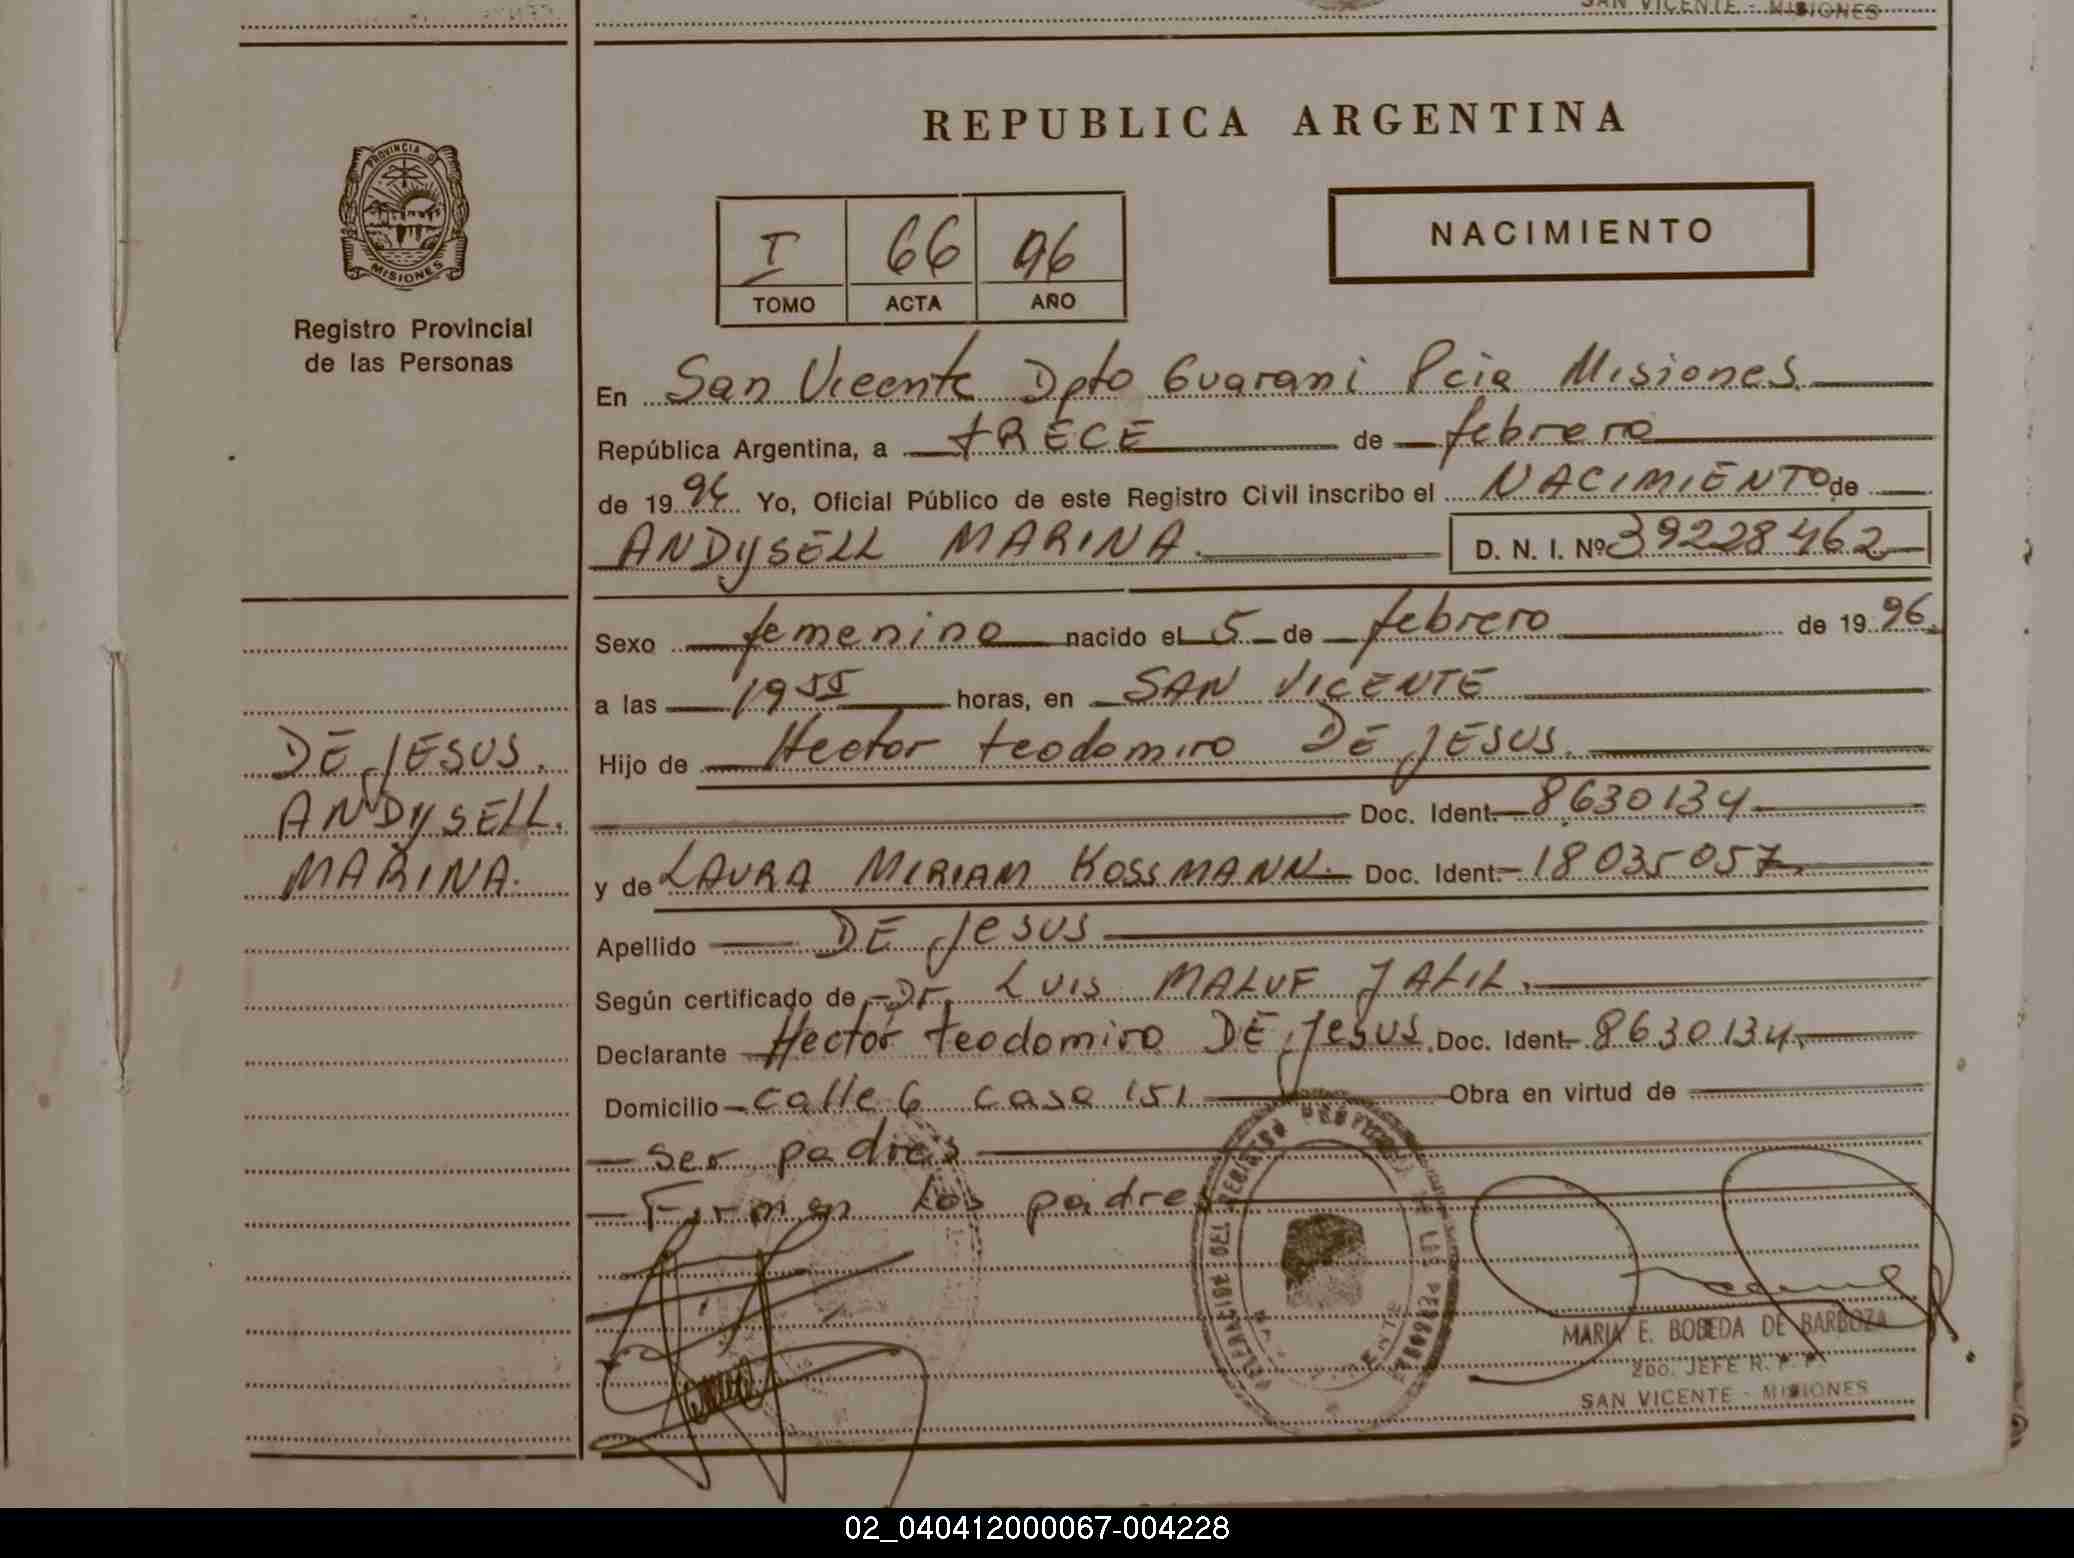 SAN VICENTE - MISIONES
PROVINCIA DE
MISIONES
Registro Provincial
de las Personas
DE JESUS.
ANDYSELL.
MARINA.
REPUBLICA ARGENTINA
I 66 96
TOMO ACTA AÑO
NACIMIENTO
En San Vicente Dpto Guarani Pcia Misiones
República Argentina, a tRECE de febrero
de 1996 Yo, Oficial Público de este Registro Civil inscribo el NACIMIENTO de
ANDYSELL MARINA. D. N. I. Nº 39228462
Sexo femenino nacido el 5 de febrero de 1996.
a las 19 55 horas, en SAN VICENTE
Hijo de Hector teodomiro DE JESUS.
Doc. Ident. 8.630134
y de LAURA MIRIAM KOSSMANN. Doc. Ident. 18035057.
Apellido DE Jesus
Según certificado de Dr. LUIS MALUF JALIL.
Declarante Hector teodomiro DE Jesus. Doc. Ident. 8630134.
Domicilio calle 6 casa 151 Obra en virtud de
ser padres
Firman los padres
MARIA E. BOBEDA DE BARBOZA
2DO. JEFE R. P. P.
SAN VICENTE - MISIONES
02_040412000067-004228